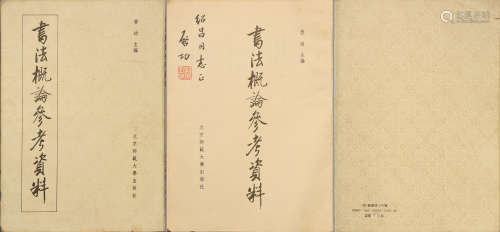 書法概論參考資料
启功 主编
北京師範大學出版社
绍昌同志正
启功
書法概論參考資料
启功 主编
北京師範大學出版社